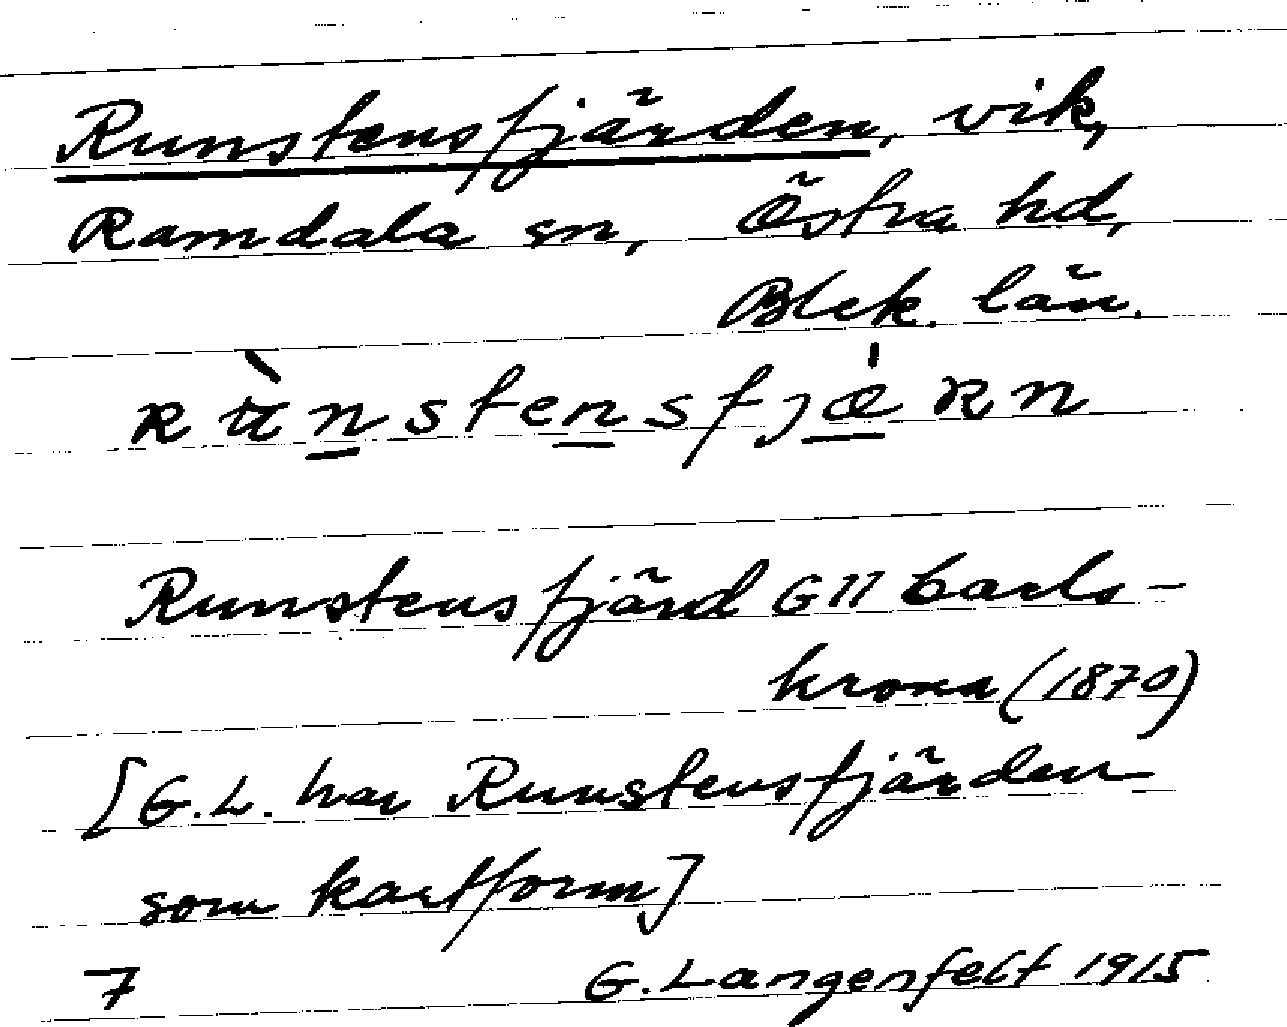 Runstensfjärden, vik,
Ramdala sn, Östra hd,
Blek. län.
rùn̲sten̲sfjæ̲̍rn
Runstensfjärd GII Carls-
krona (1870)
[G.L. har Runstensfjärden
som kartform]
7 G. Langenfelt 1915